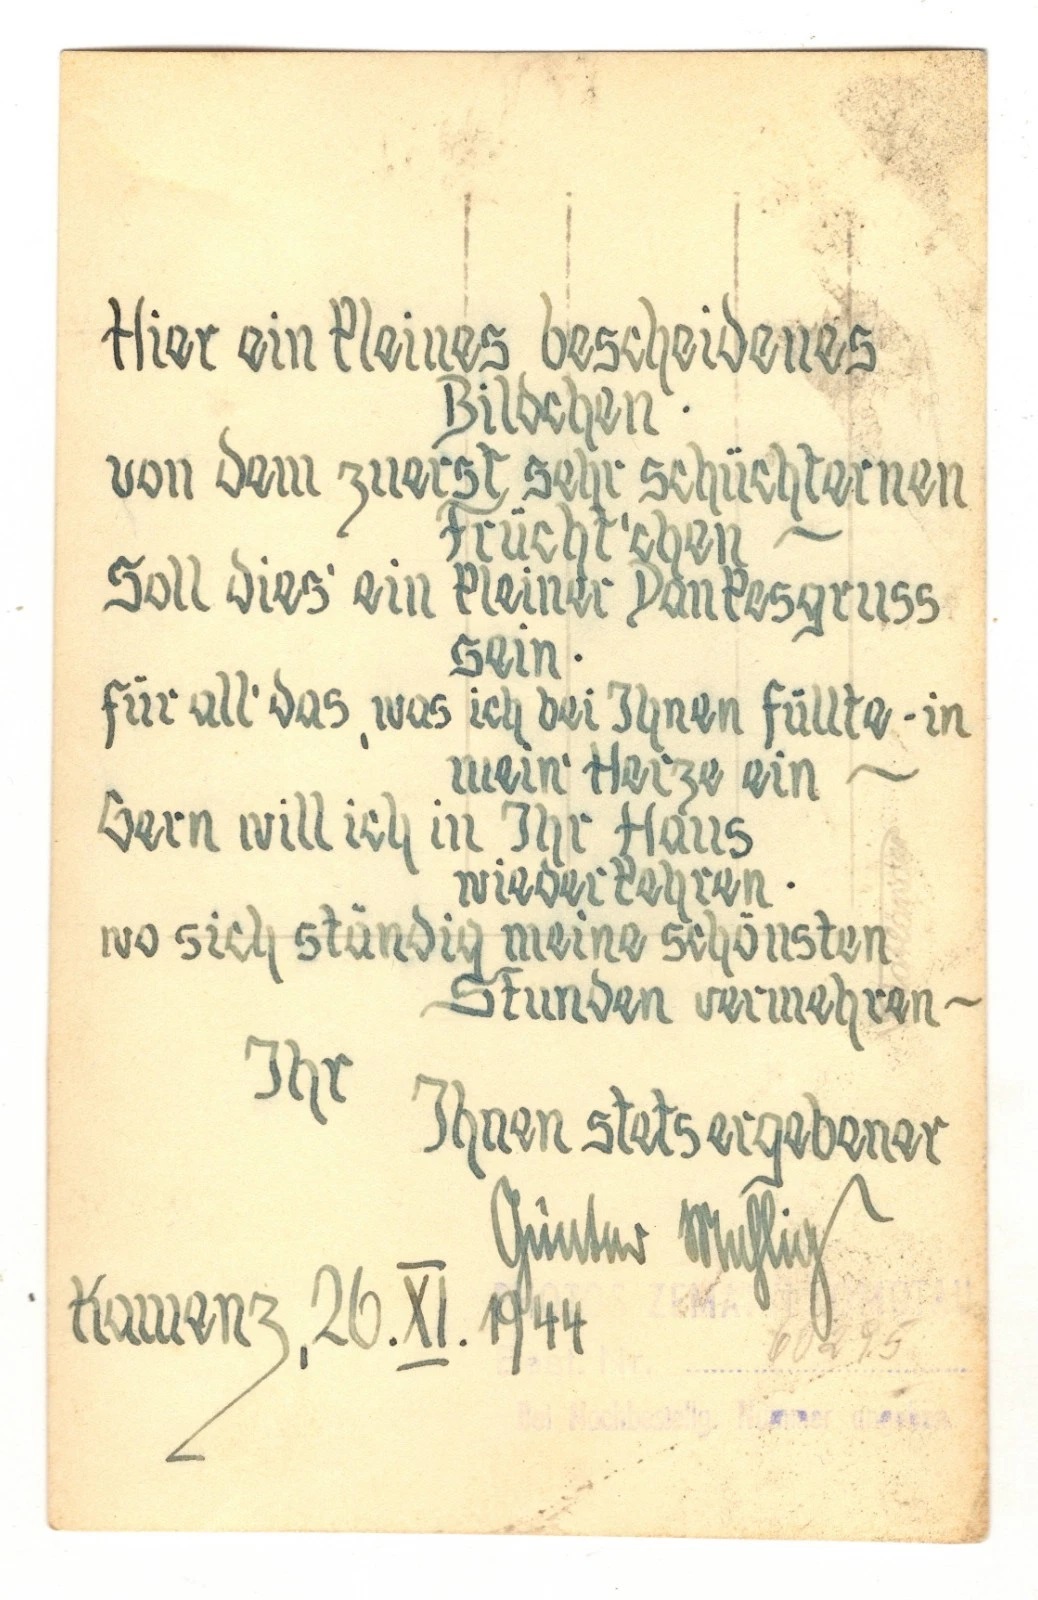 Hier ein kleines bescheidenes
Bildchen.
von dem zuerst sehr schüchternen
Frücht'chen ~
Soll dies' ein kleiner Dankesgruss
sein.
für all' das, was ich bei Ihnen füllte - in
mein' Herze ein ~
Gern will ich in Ihr Haus
wiederkehren.
wo sich ständig meine schönsten
Stunden vermehren ~
Ihr
Ihnen stets ergebener
Günter
Kamenz, 26. XI. 1944
60295
Bei Nachbestellg. Nummer